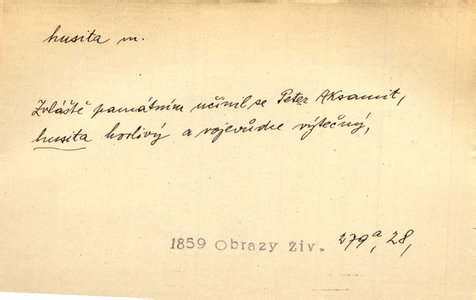 husita m.
Zvláště památním učinil se Peter Aksamit,
husita horlivý a vojevůdce výtečný,
1859 Obrazy Živ. 279a, 28,